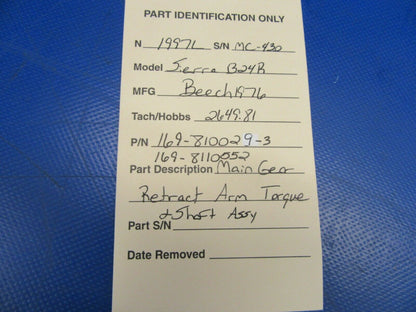 PART IDENTIFICATION ONLY
N 1997L S/N MC-430
Model Sierra B24R
MFG Beech 1976
Tach/Hobbs 2649.81
P/N 169-810029-3
169-8110552
Part Description Main Gear
Retract Arm Torque
& Shaft Assy
Part S/N
Date Removed